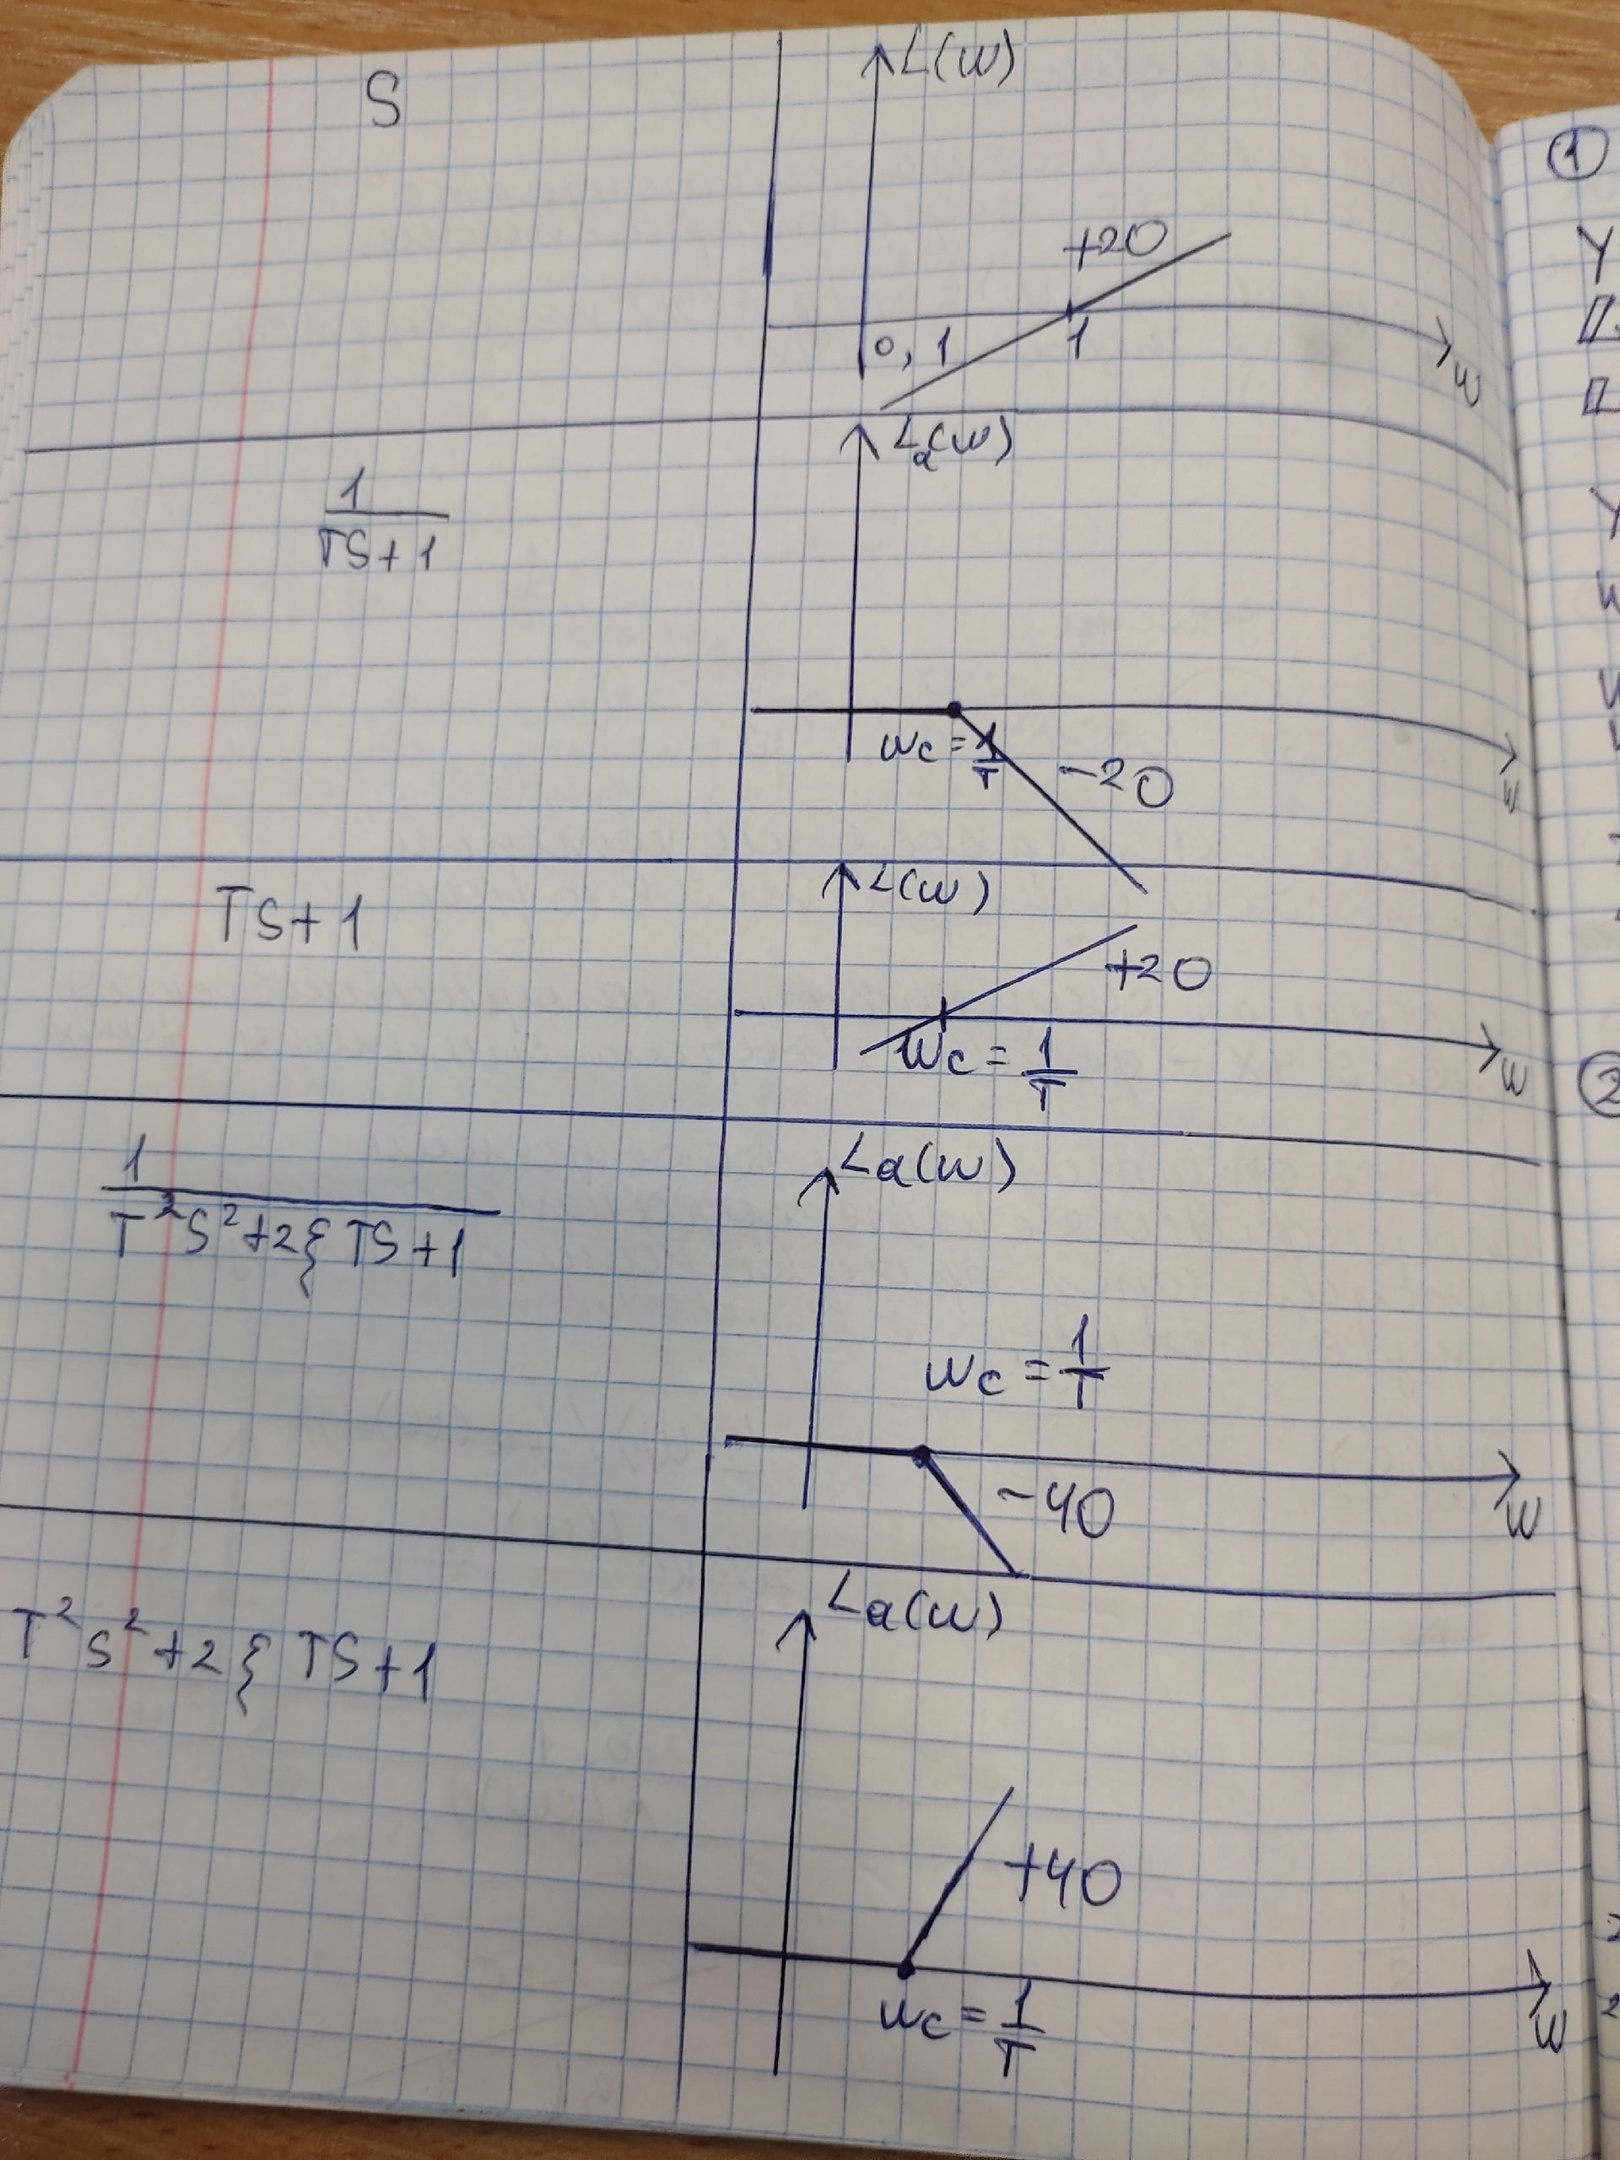 S
L(w)
+20
0,1
1
w
1
TS+1
La(w)
wc = 1
T
-20
w
TS+1
L(w)
+20
wc = 1
T
w
1
T²S²+2ξTS+1
La(w)
wc = 1
T
-40
w
T²S²+2ξTS+1
La(w)
+40
wc = 1
T
w
1
2